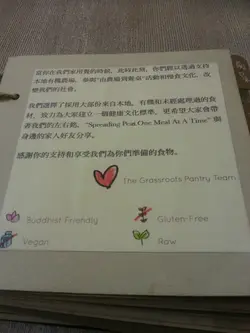 當你在我們家用餐的時候,此時此刻,你們能以透過支持
本地有機農場,參與“由農場到餐桌”活動和慢食文化,改
變我們的社會。
我們選擇了採用大部份來自本地、有機和未經處理過的食
材,致力為大家建立一個健康文化標準,更希望大家會帶
著我們的左右銘, “Spreading Peat One Meal At A Time” 與
身邊的家人好友分享。
感謝你的支持和享受我們為你們準備的食物。
The Grassroots Pantry Team
Buddhist Friendly
Gluten-Free
Vegan
Raw